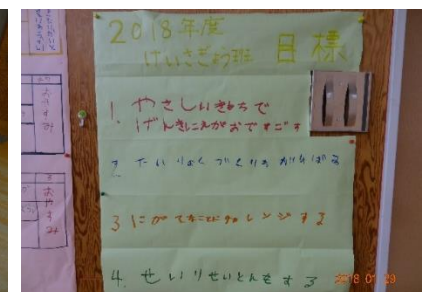 2018年度
けいさぎょう班 目様
1. やさしいきもちで
げんきにえがおですごす
2. たいりょくづくりをがんばる
3 にがてなことにチャレンジする
4. せいりせいとんをする
2018.01.29
おやすみ